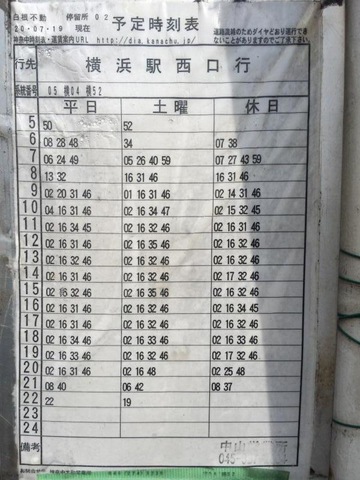 白根不動 停留所 02
20-07-19 現在
予定時刻表
神奈中時刻表・運賃案内URL http://dia.kanachu.jp/
道路混雑のためダイヤどおり運行できないことがありますのでご了承下さい
行先 横浜駅西口行
系統番号 05 横04 横52
平日 土曜 休日
5 50 52
6 08 28 48 34 07 38
7 06 24 49 05 26 40 59 07 27 43 59
8 13 32 16 31 46 16 31 46
9 02 20 31 46 01 16 31 46 02 14 31 46
10 04 16 31 46 02 16 34 47 02 15 32 45
11 02 16 34 45 02 16 32 46 02 16 34 46
12 02 16 31 46 02 16 35 46 02 16 32 46
13 02 16 31 46 02 16 32 46 02 16 32 46
14 02 16 31 46 02 16 32 46 02 17 32 46
15 02 16 32 46 02 16 35 46 02 16 32 46
16 02 16 31 46 02 16 32 46 02 16 34 46
17 02 16 31 46 02 16 32 46 02 16 32 46
18 02 16 34 46 02 16 33 46 02 16 33 46
19 02 16 33 46 02 16 32 46 02 17 32 46
20 02 16 31 46 02 16 48 02 25 48
21 08 40 06 42 08 37
22 22 19
23
24
備考